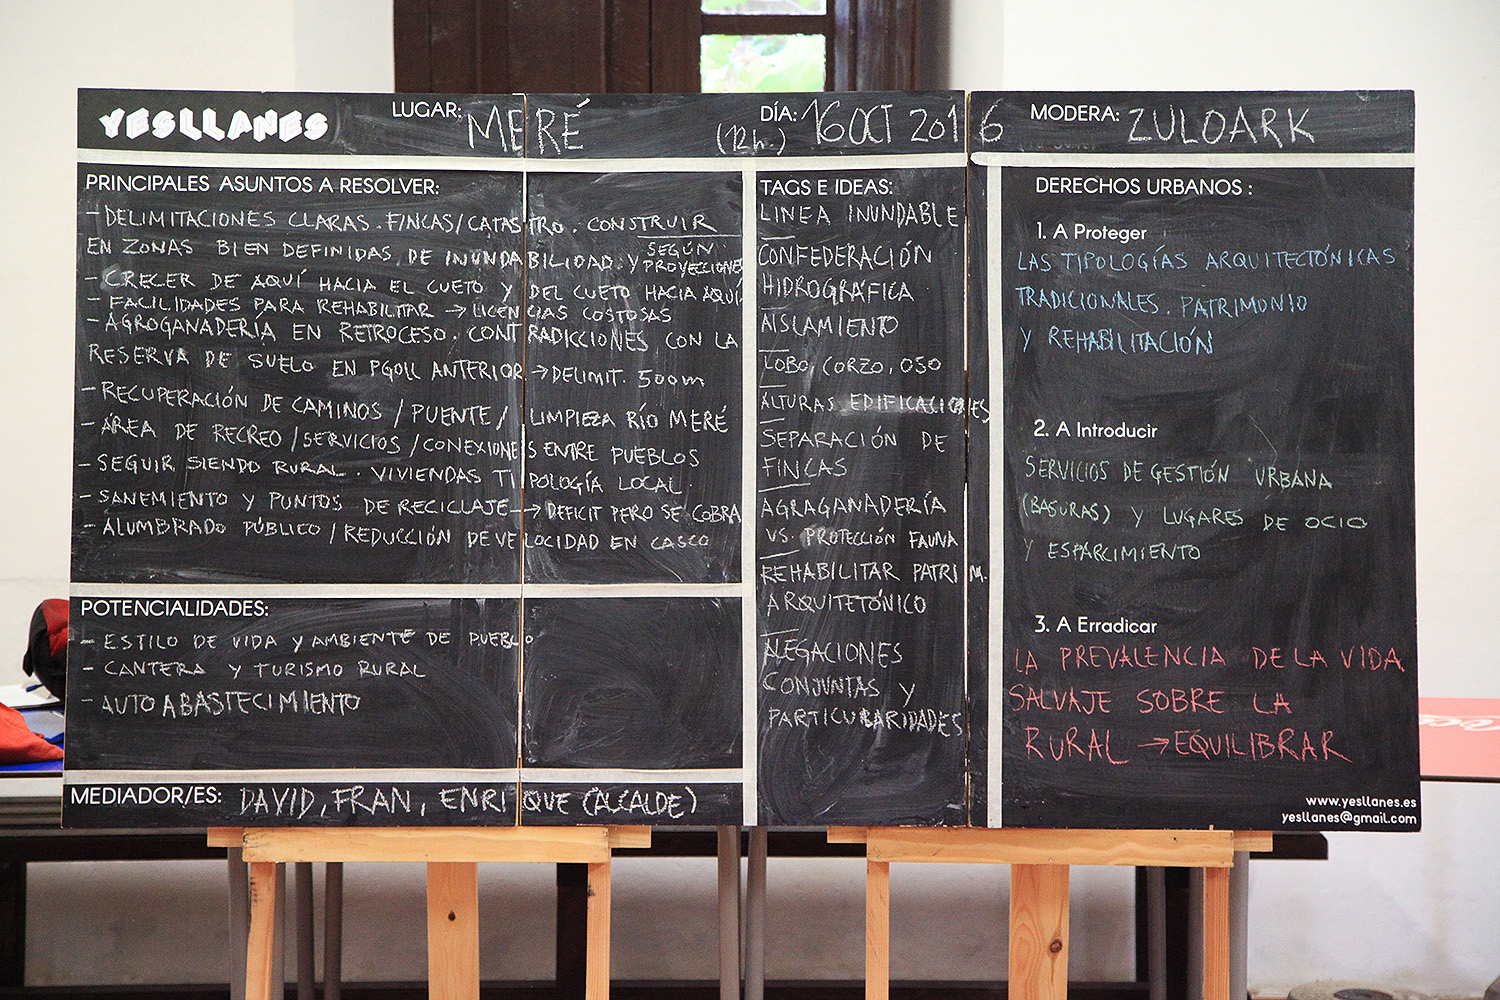 YESLLANES
LUGAR: MERÉ
DÍA: 16 OCT 2016
(12h.)
MODERA: ZULOARK
PRINCIPALES ASUNTOS A RESOLVER:
- DELIMITACIONES CLARAS. FINCAS/CATASTRO. CONSTRUIR
EN ZONAS BIEN DEFINIDAS DE INUNDABILIDAD. Y SEGÚN PROYECCIONES
- CRECER DE AQUÍ HACIA EL CUETO Y DEL CUETO HACIA AQUÍ
- FACILIDADES PARA REHABILITAR → LICENCIAS COSTOSAS
- AGROGANADERIA EN RETROCESO. CONTRADICCIONES CON LA
RESERVA DE SUELO EN PGOLL ANTERIOR → DELIMIT. 500m
- RECUPERACIÓN DE CAMINOS / PUENTE / LIMPIEZA RÍO MERÉ
- ÁREA DE RECREO / SERVICIOS / CONEXIONES ENTRE PUEBLOS
- SEGUIR SIENDO RURAL. VIVIENDAS TIPOLOGÍA LOCAL.
- SANEMIENTO Y PUNTOS DE RECICLAJE → DEFICIT PERO SE COBRA
- ALUMBRADO PÚBLICO / REDUCCIÓN DE VELOCIDAD EN CASCO
POTENCIALIDADES:
- ESTILO DE VIDA Y AMBIENTE DE PUEBLO
- CANTERA Y TURISMO RURAL
- AUTOABASTECIMIENTO
MEDIADOR/ES: DAVID, FRAN, ENRIQUE (ALCALDE)
TAGS E IDEAS:
LINEA INUNDABLE
CONFEDERACIÓN
HIDROGRÁFICA
AISLAMIENTO
LOBO, CORZO, OSO
ALTURAS EDIFICACIONES
SEPARACIÓN DE
FINCAS
AGRAGANADERÍA
VS. PROTECCIÓN FAUNA
REHABILITAR PATRIM.
ARQUITETÓNICO
ALEGACIONES
CONJUNTAS Y
PARTICULARIDADES
DERECHOS URBANOS :
1. A Proteger
LAS TIPOLOGÍAS ARQUITECTÓNICAS
TRADICIONALES. PATRIMONIO
Y REHABILITACIÓN
2. A Introducir
SERVICIOS DE GESTIÓN URBANA
(BASURAS) Y LUGARES DE OCIO
Y ESPARCIMIENTO
3. A Erradicar
LA PREVALENCIA DE LA VIDA
SALVAJE SOBRE LA
RURAL → EQUILIBRAR
www.yesllanes.es
yesllanes@gmail.com